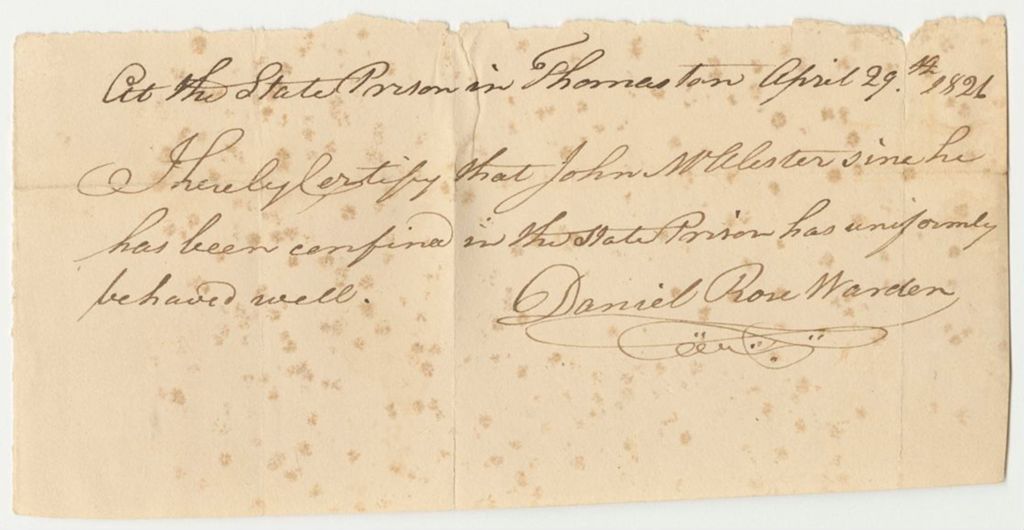 At the State Prison in Thomaston April 29.th 1826
I hereby Certify that John McAlester sine he
has been confined in the State Prison has uniformly
behaved well.
Daniel Rose Warden